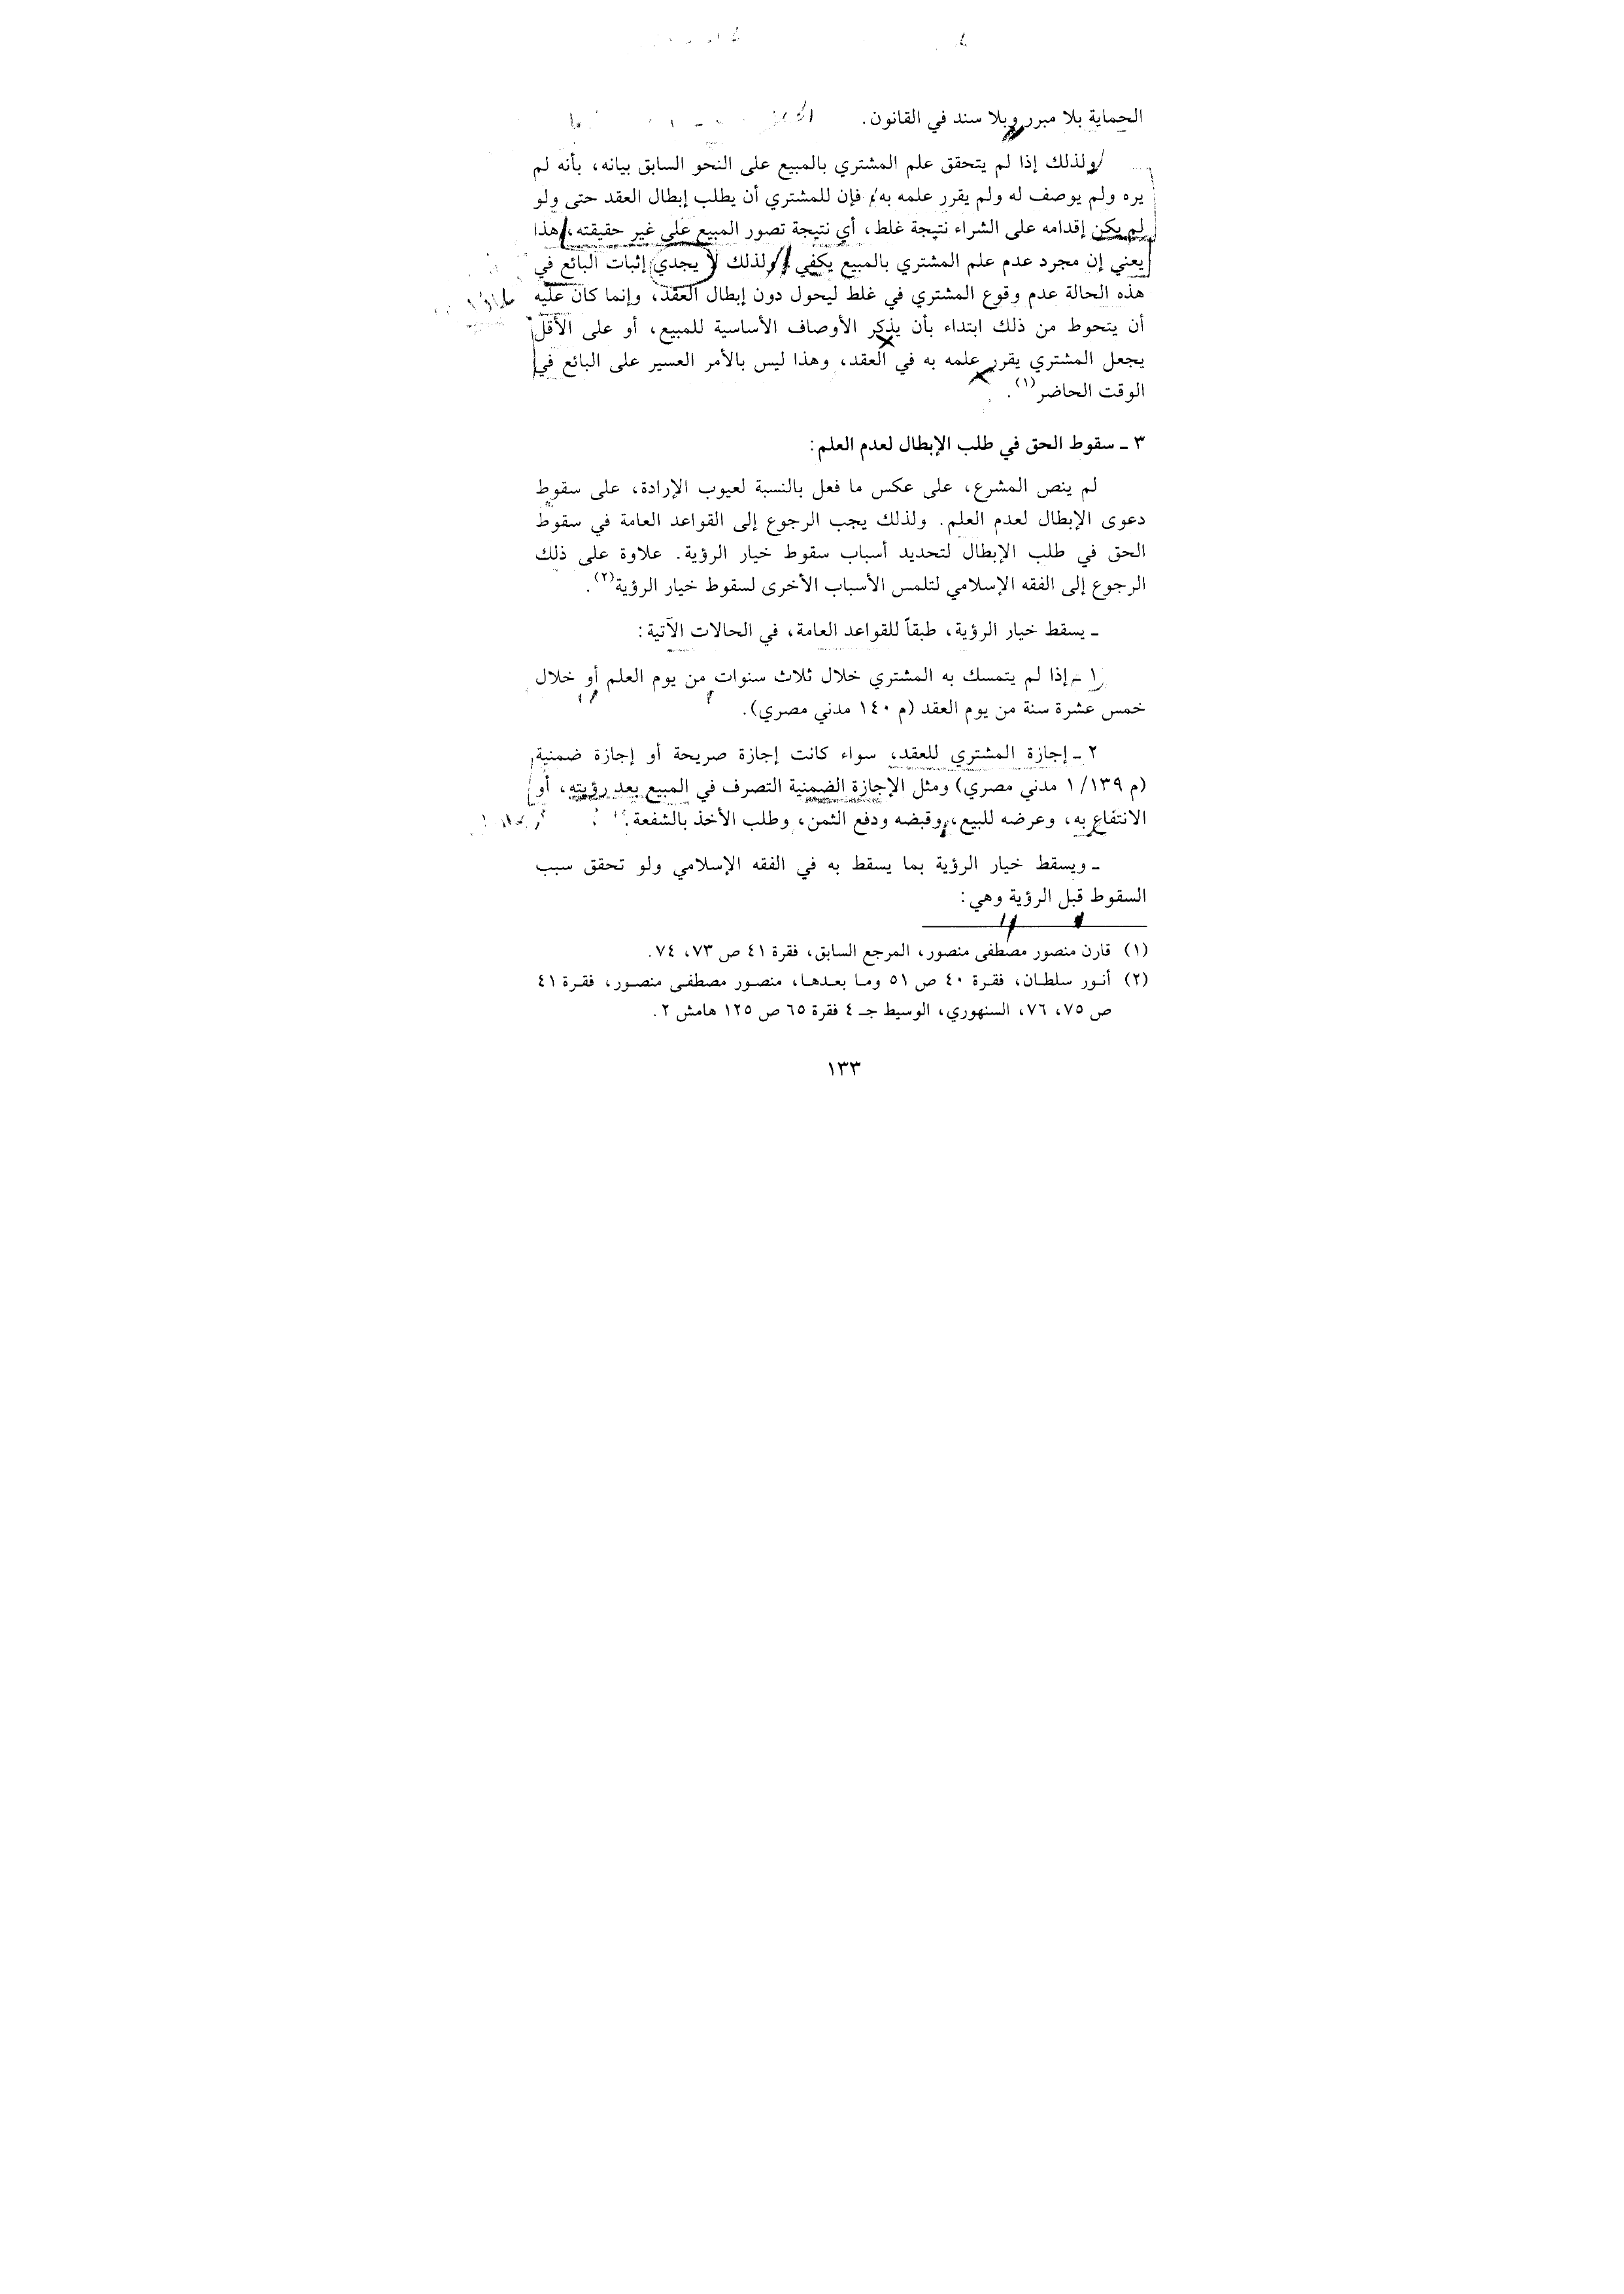 الحماية بلا مبرر وبلا سند في القانون.
ولذلك إذا لم يتحقق علم المشتري بالمبيع على النحو السابق بيانه، بأنه لم
يره ولم يوصف له ولم يقرر علمه به، فإن للمشتري أن يطلب إبطال العقد حتى ولو
لم يكن إقدامه على الشراء نتيجة غلط، أي نتيجة تصور المبيع على غير حقيقته، هذا
يعني إن مجرد عدم علم المشتري بالمبيع يكفي. ولذلك لا يجدي إثبات البائع في
هذه الحالة عدم وقوع المشتري في غلط ليحول دون إبطال العقد، وإنما كان عليه
أن يتحوط من ذلك ابتداء بأن يذكر الأوصاف الأساسية للمبيع، أو على الأقل
يجعل المشتري يقرر علمه به في العقد، وهذا ليس بالأمر العسير على البائع في
الوقت الحاضر(١).
٣ ـ سقوط الحق في طلب الإبطال لعدم العلم:
لم ينص المشرع، على عكس ما فعل بالنسبة لعيوب الإرادة، على سقوط
دعوى الإبطال لعدم العلم. ولذلك يجب الرجوع إلى القواعد العامة في سقوط
الحق في طلب الإبطال لتحديد أسباب سقوط خيار الرؤية. علاوة على ذلك
الرجوع إلى الفقه الإسلامي لتلمس الأسباب الأخرى لسقوط خيار الرؤية(٢).
ـ يسقط خيار الرؤية، طبقاً للقواعد العامة، في الحالات الآتية:
١ ـ إذا لم يتمسك به المشتري خلال ثلاث سنوات من يوم العلم أو خلال
خمس عشرة سنة من يوم العقد (م ١٤٠ مدني مصري).
٢ ـ إجازة المشتري للعقد، سواء كانت إجازة صريحة أو إجازة ضمنية
(م ١٣٩/ ١ مدني مصري) ومثل الإجازة الضمنية التصرف في المبيع بعد رؤيته، أو
الانتفاع به، وعرضه للبيع، وقبضه ودفع الثمن، وطلب الأخذ بالشفعة.
ـ ويسقط خيار الرؤية بما يسقط به في الفقه الإسلامي ولو تحقق سبب
السقوط قبل الرؤية وهي:
(١) قارن منصور مصطفى منصور، المرجع السابق، فقرة ٤١ ص ٧٣، ٧٤.
(٢) أنور سلطان، فقرة ٤٠ ص ٥١ وما بعدها، منصور مصطفى منصور، فقرة ٤١
ص ٧٥، ٧٦، السنهوري، الوسيط جـ ٤ فقرة ٦٥ ص ١٢٥ هامش ٢.
١٣٣